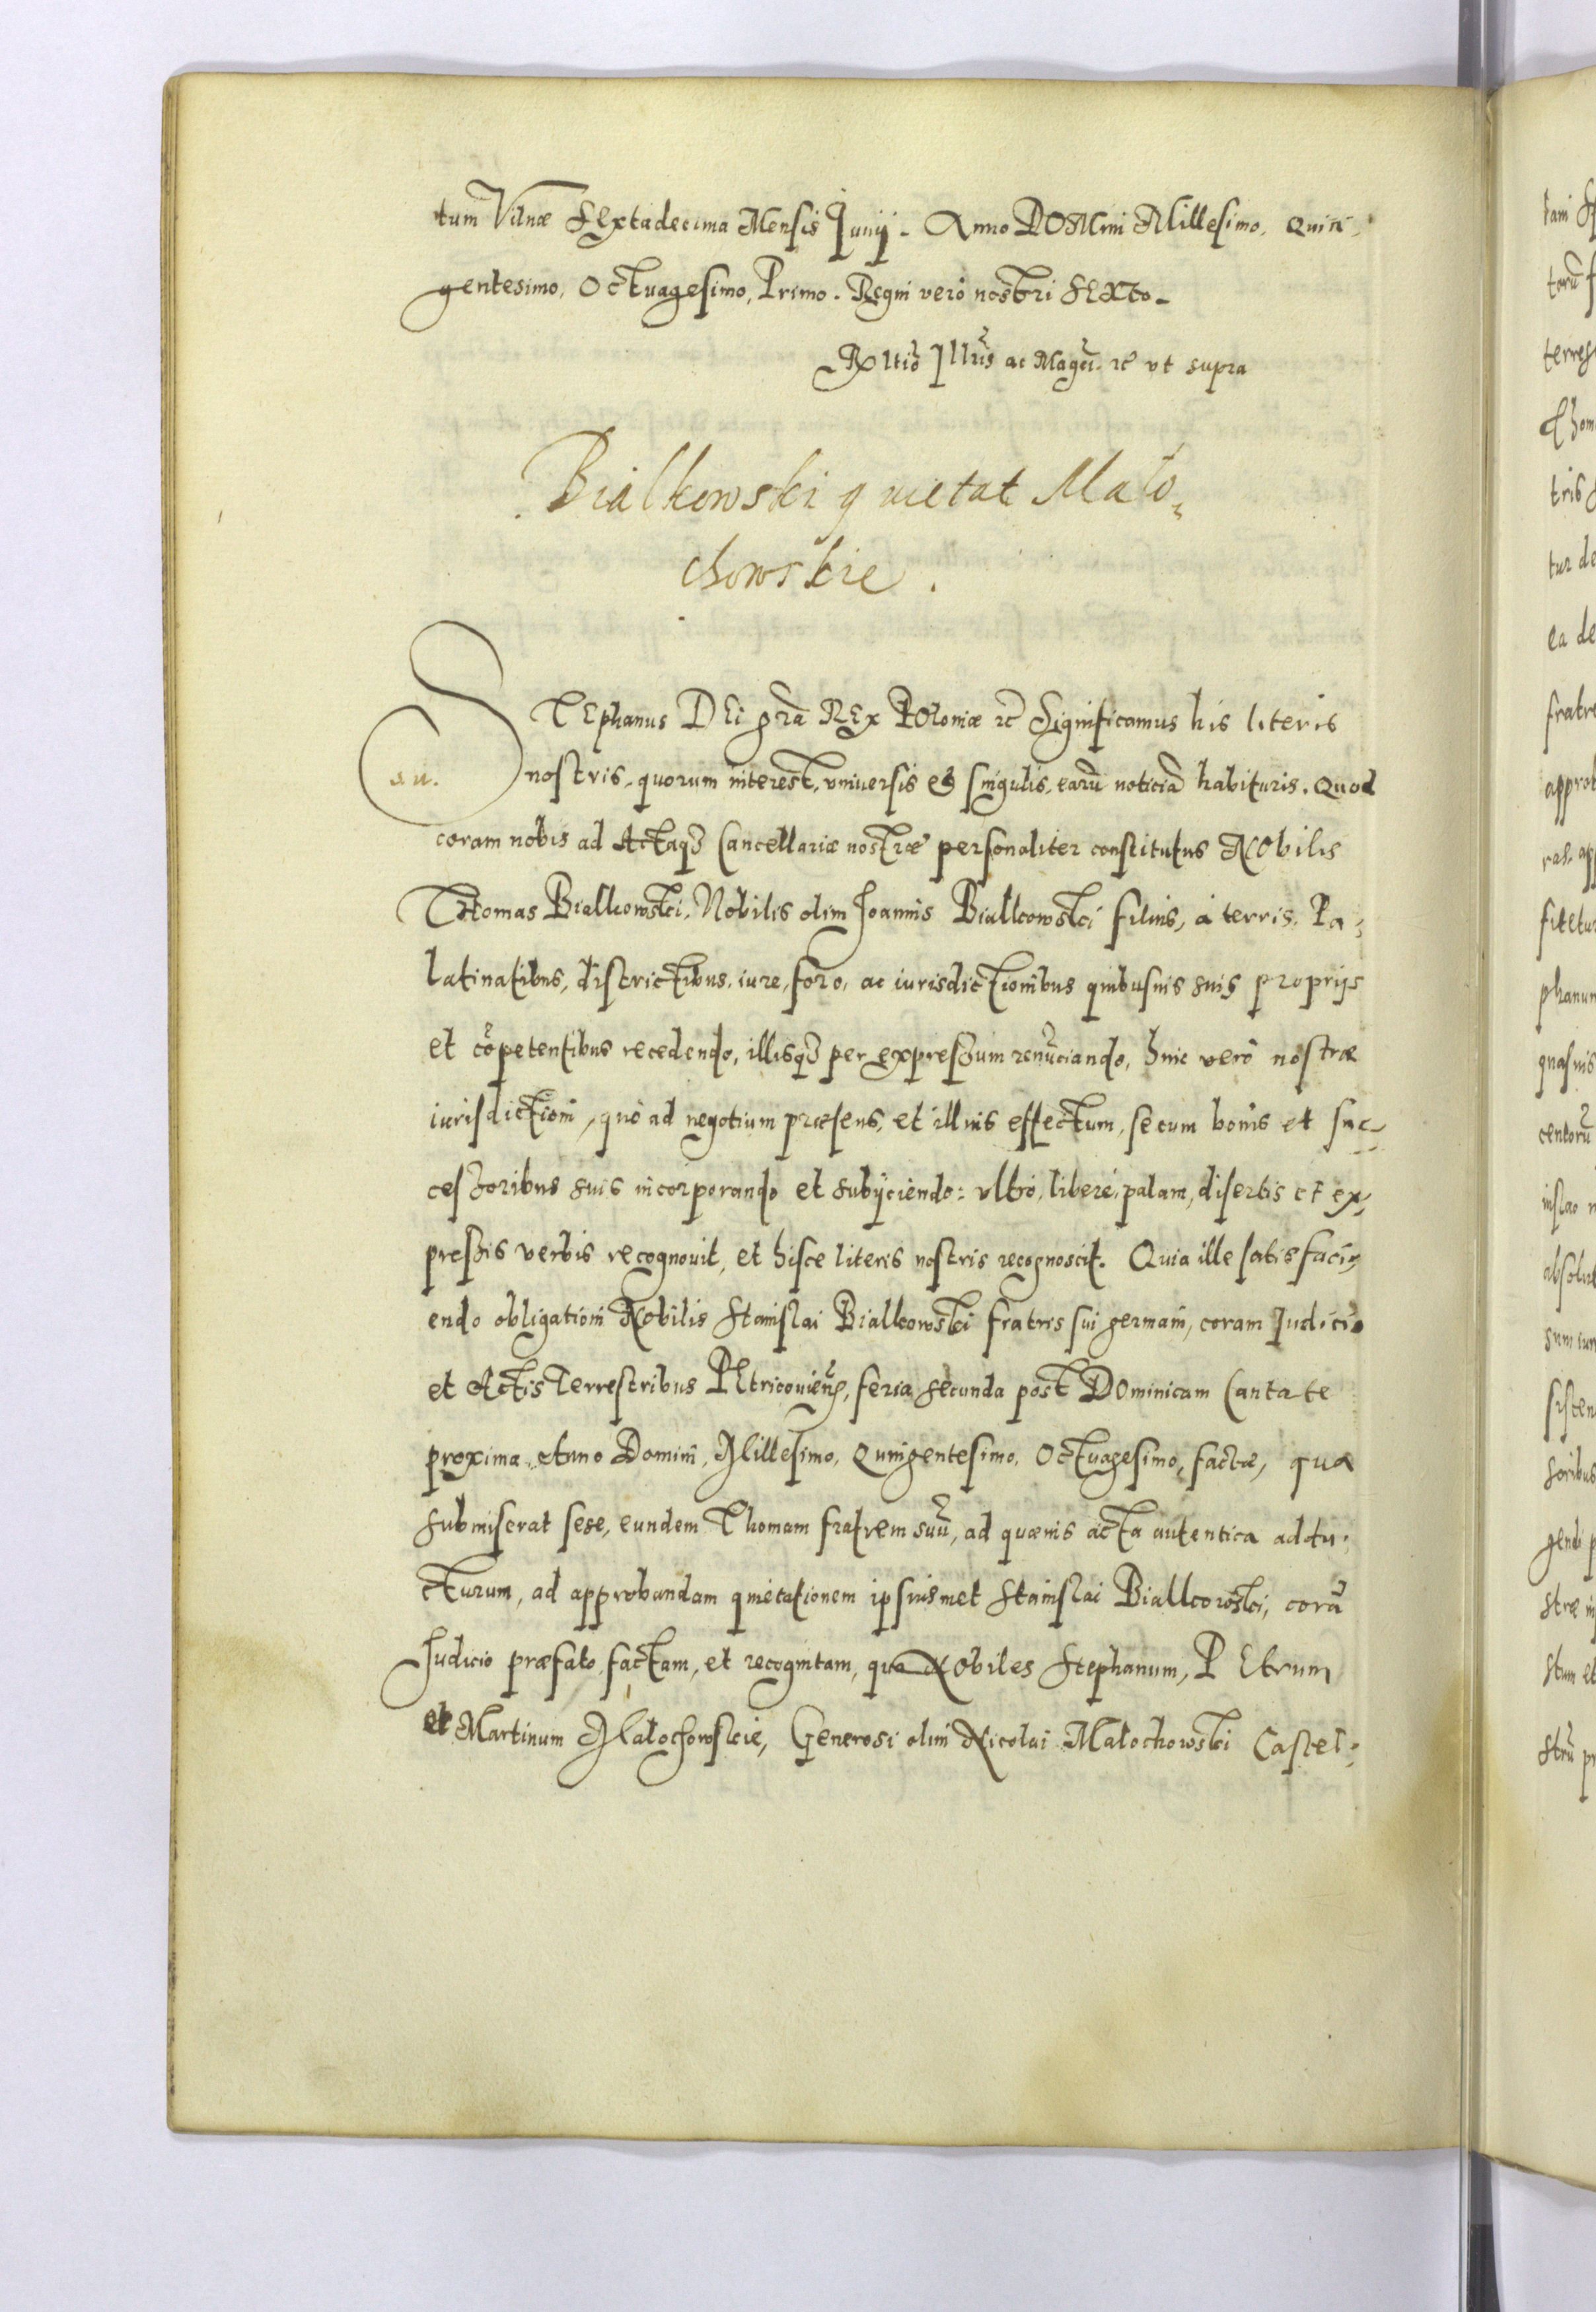 tum Vilnæ SExtadecima Mensis Junij. Anno DOMini Millesimo, Quin
gentesimo, Octuagesimo, Primo. Regni verò nostri SEXto.
Rltiõ Illris ac Magci. rc̃ vt supra
Bialkowski quietat Mało
chowskie.
STEphanus DEi gr̃a REx POloniæ rc̃ Significamus his literis
nostris, quorum interest, vniversis et singulis, earũ noticiã habituris. Quod
coram nobis ad Actaq3 Cancellariæ nostræ personaliter constitutus NObilis
THomas Bialkowski, Nobilis olim Joannis Bialkowski filius, à terris, Pa
latinatibus, districtibus, iure, foro, ac iurisdictionibus quibusuis suis proprijs
et cõpetentibus recedendo, illisq3 per expressum renũciando, huic verò nostræ
iurisdictioni, quò ad negotium præsens, et illius effectum, se cum bonis et suc
cessoribus suis incorporando et subijciendo: vltrò, liberè, palam, disertis et ex
pressis verbis recognouit, et hisce literis nostris recognoscit. Quia ille satisfaci
endo obligationi Nobilis Stanislai Bialkowski fratris sui germani, coram Judicio
et Actis Terrestribus PEtricouieñ, feria secunda post DOminicam Cantate
proxima, Anno Domini, Millesimo, Quingentesimo, Octuagesimo, factæ, qua
submiserat sese, eundem Thomam fratrem suũ, ad quæuis acta autentica addu
cturum, ad approbandam quietationem ipsiusmet Stanislai Bialkowski, corã
Judicio præfato factam, et recognitam, qua Nobiles Stephanum, PEtrum
et Martinum Małochowskie, Generosi olim Nicolai Małochowski Castel